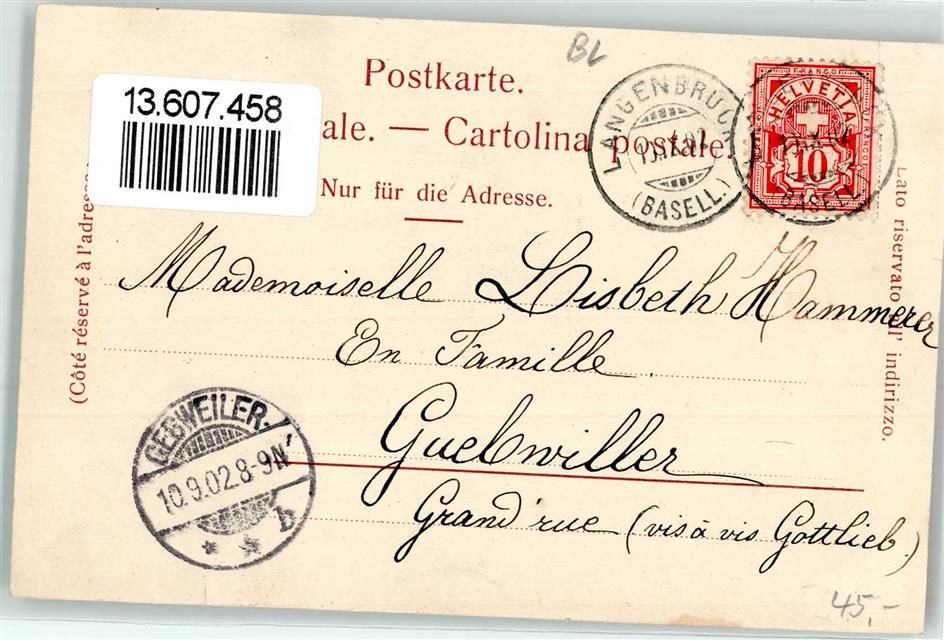 BL
Postkarte.
13.607.458
ale. — Cartolina postale.
Nur für die Adresse.
LANGENBRUCK
(BASELL.)
FRANCO
HELVETIA
FRANCO
10
BASELL
(Côté réservé à l'adresse
Lato riservato all' indirizzo.
Mademoiselle Lisbeth Hammerer
En Famille
Guebwiller
Grand'rue (vis à vis Gottlieb)
GEBWEILER.
10.9.02.8-9N
b
45.-